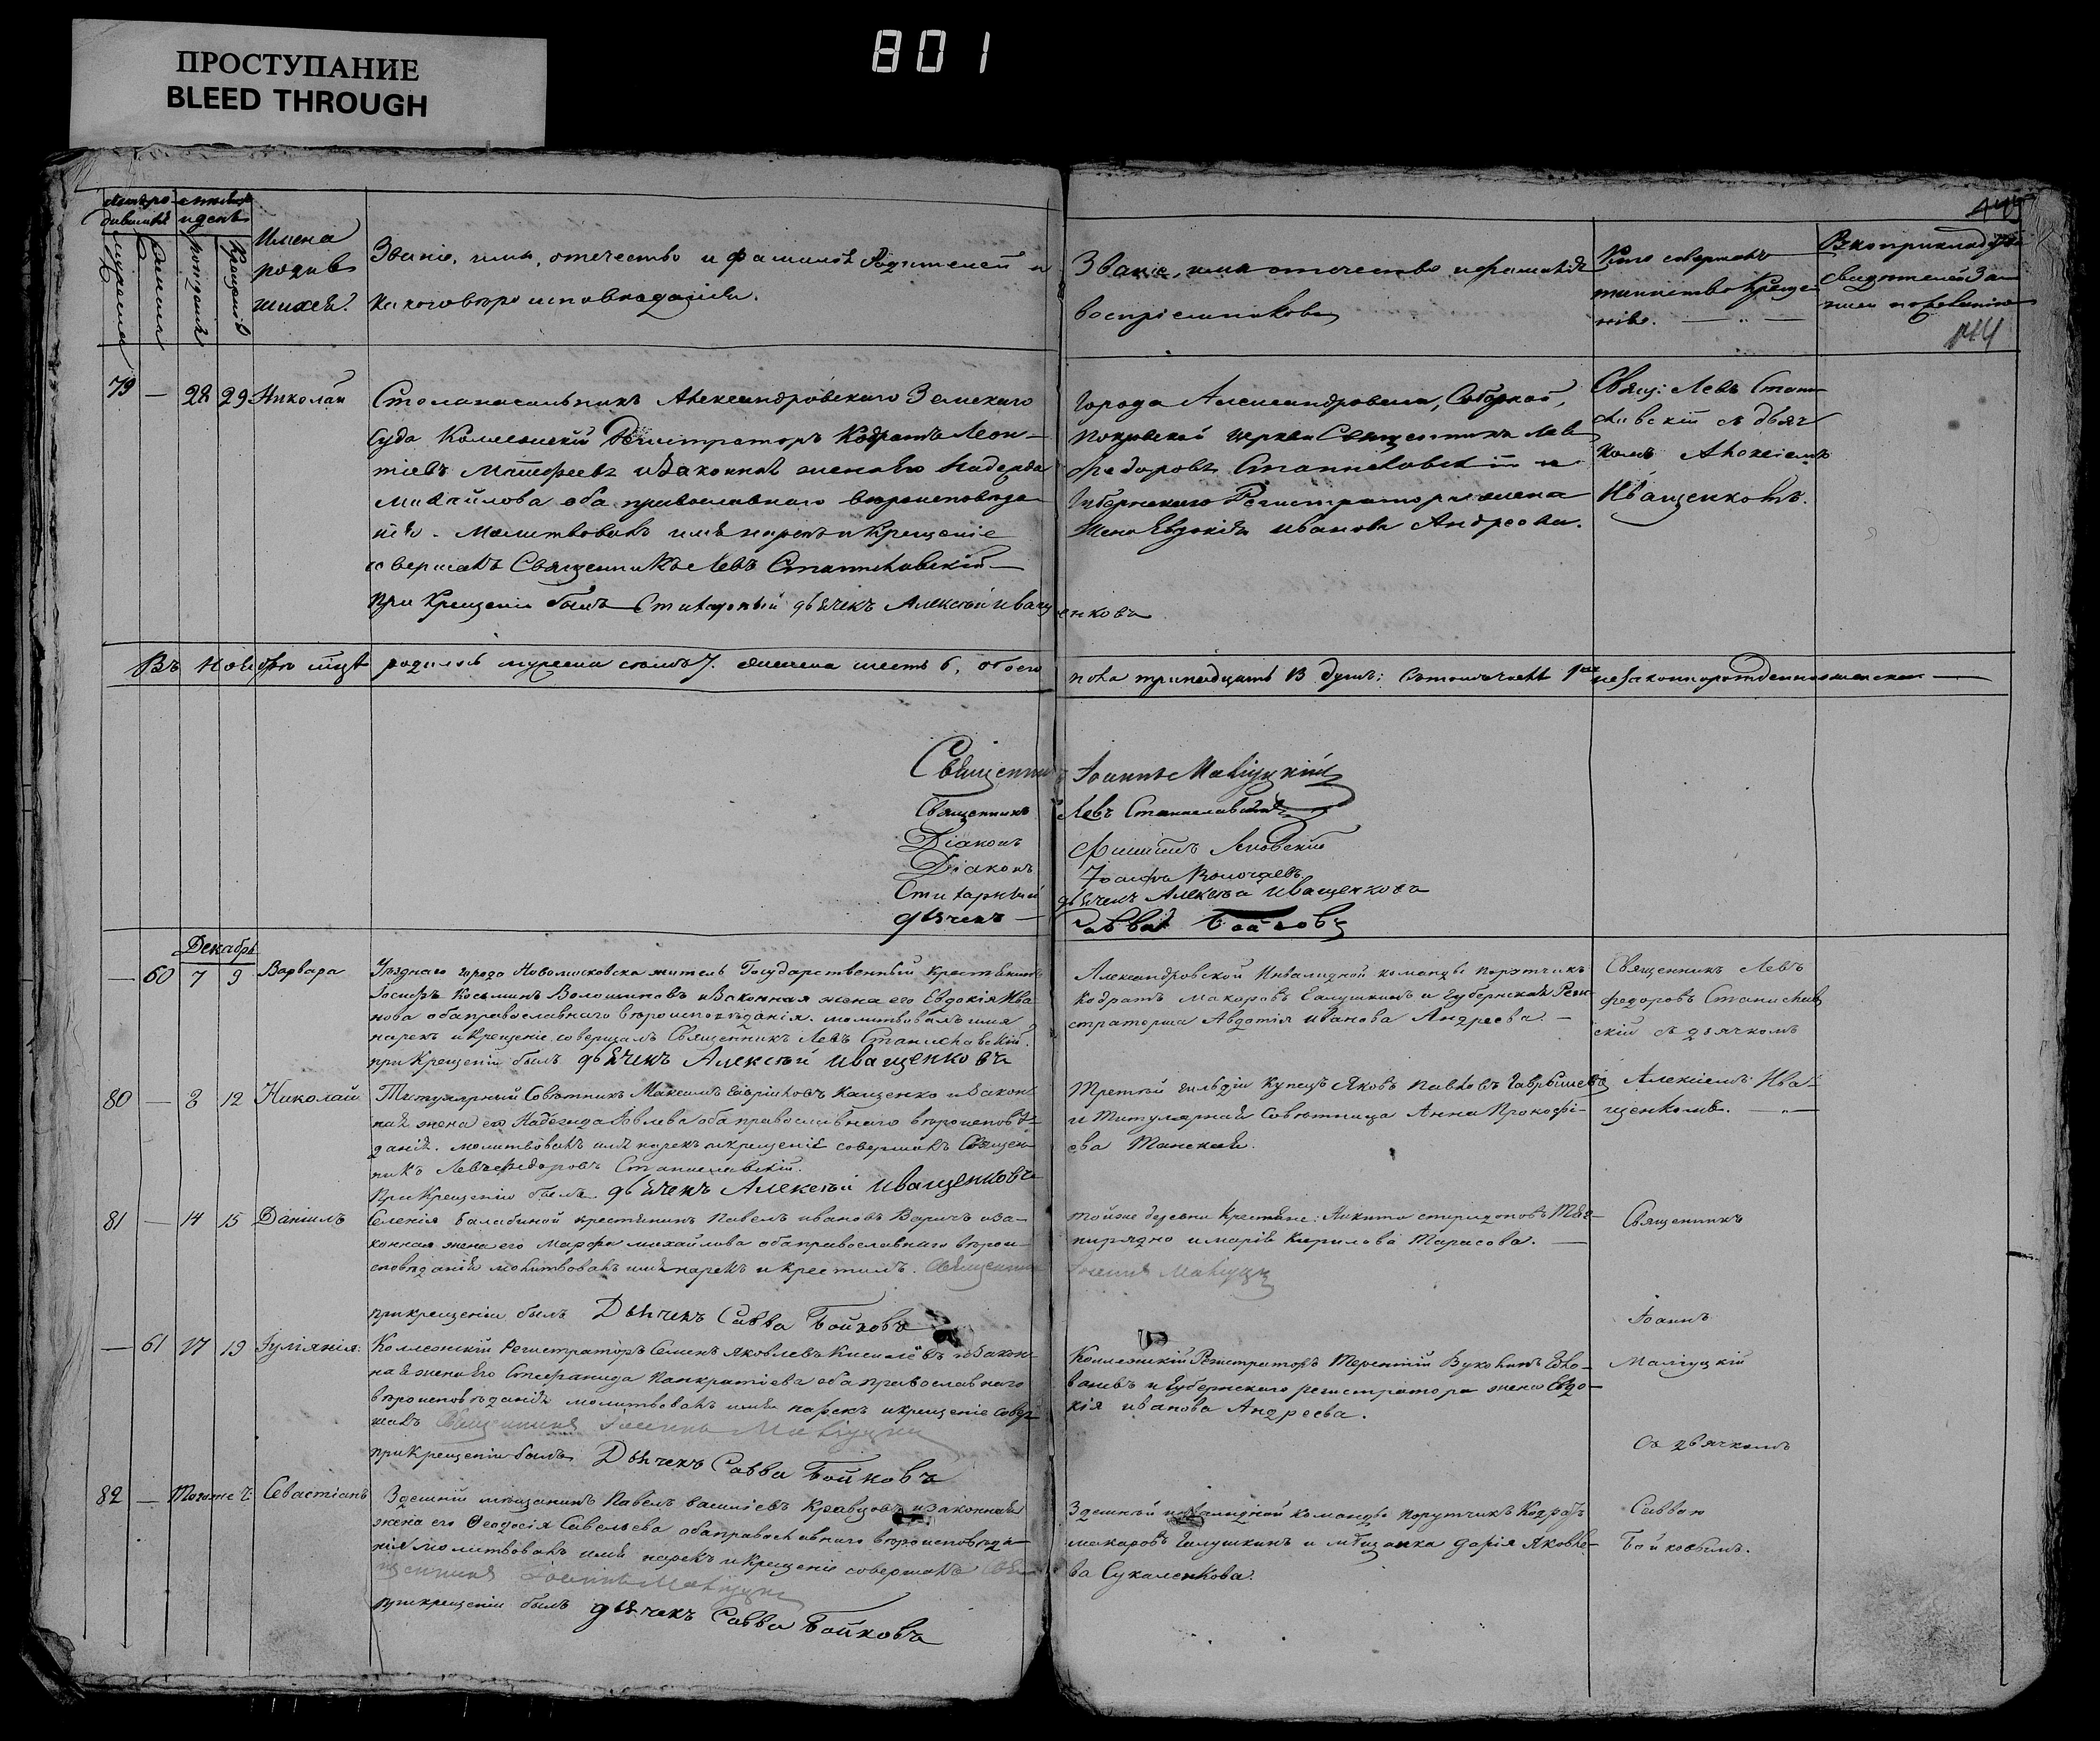 ПРОСТУПАНИЕ
BLEED THROUGH
801
144
Имена
родив
шихся.
Званіе, имя, отечество и фамилія Родителей и
какого вѣроисповѣданія.
Званіе, имя отечество и фамилія
воспріемниковъ
Кто совершалъ
таинство Креще
нія.
79 — 28 29 Николай
Столоначальникъ Александровскаго Земскаго
Суда Коллежскій Регистраторъ Кодратъ Леон-
тіевъ Матфеевъ и Законная жена его Надежда
Михайлова оба православнаго вѣроисповѣда
нія. Молитвовалъ имя нарекъ и Крещеніе
совершалъ Священникъ Левъ Станиславскій
При Крещеніи былъ Стихарный дьячекъ Алексѣй Иващенковъ
Города Александровска, Соборной,
Покровской церкви Священникъ Левъ
Федоровъ Станиславскій и
Губернскаго Регистратора
жена Евдокія Иванова Андреева.
Свящ: Левъ Стани
славскій съ дьяч
комъ Алексіемъ
Иващенковъ.
Въ Ноябрѣ мцѣ родилось мужеска семь 7. женска шесть 6, обоего
пола тринадцать 13 душъ: Въ томъ числѣ 1 незаконнорожденная женска
Священникъ Іоаннъ Малуцкій
Священникъ Левъ Станиславскій
Діаконъ Филиппъ
Діаконъ
Стихарный дьячекъ Алексѣй Иващенковъ
дьячекъ — Савва Бойковъ
Декабрь
— 60 7 9 Варвара
Уѣзднаго города Новомосковска житель Государственный Крестьянинъ
Іосифъ Косьминъ Волошиновъ и Законная жена его Евдокія Ива
нова оба православнаго вѣроисповѣданія. молитвовалъ имя
нарекъ и Крещеніе совершалъ Священникъ Левъ Станиславскій.
при Крещеніи былъ дьячекъ Алексѣй Иващенковъ
Александровской Инвалидной команды порутчикъ
Кодратъ Макаровъ Галушкинъ и Губернская Реги-
страторша Авдотія Иванова Андреева. —
Священникъ Левъ
Федоровъ Станислав
скій съ дьячкомъ
80 — 8 12 Николай
Титулярный Совѣтникъ Максимъ Гавриловъ Кащенко и Закон
ная жена его Надежда оба православнаго вѣроисповѣ-
данія. молитвовалъ имя нарекъ и крещеніе совершалъ Священ-
никъ Левъ Федоровъ Станиславскій.
При Крещеніи былъ дьячекъ Алексѣй Иващенковъ
Третьей гильдіи Купецъ Яковъ Павловъ Гаврышевъ
и Титулярная Совѣтница Анна Прокофі-
ева Танская.
Алексіемъ Ива-
щенковъ.
81 — 14 15 Даніилъ
Селенія Балабиной крестьянинъ Павелъ Ивановъ Варичъ и За-
конная жена его Марфа Михайлова оба православнаго вѣрои-
сповѣданія молитвовалъ имя нарекъ и крестилъ. Священникъ Іоаннъ Малуцкій
при крещеніи былъ Дьячекъ Савва Бойковъ
той же деревни Крестьяне: Никита Спиридоновъ
и Марія Кирилова Тарасова. —
Священникъ
Іоаннъ
Малуцкій
съ дьячкомъ
Саввою
Бойковымъ.
— 61 17 19 Іуліанія.
Коллежскій Регистраторъ Семенъ Яковлевъ Киселёвъ и Закон-
ная жена его Стефанида Панкратіева оба православнаго
вѣроисповѣданія молитвовалъ имя нарекъ и крещеніе совер
шалъ Священникъ Іоаннъ Малуцкій
при Крещеніи былъ Дьячекъ Савва Бойковъ
Коллежскій Регистраторъ Терентій
и Губернскаго регистратора жена Евдо-
кія Иванова Андреева.
82 — Того же ч. Севастіанъ
Здешній мѣщанинъ Павелъ Васильевъ Кравцовъ и законная
жена его Феодосія Савельева оба православнаго вѣроисповѣда-
нія молитвовалъ имя нарекъ и крещеніе совершалъ Свя
щенникъ Іоаннъ Малуцкій
при крещеніи былъ дьячекъ Савва Бойковъ
Здешней инвалидной команды порутчикъ Кодратъ
Макаровъ Галушкинъ и мѣщанка Дарія Яковле-
ва Сукаленкова.